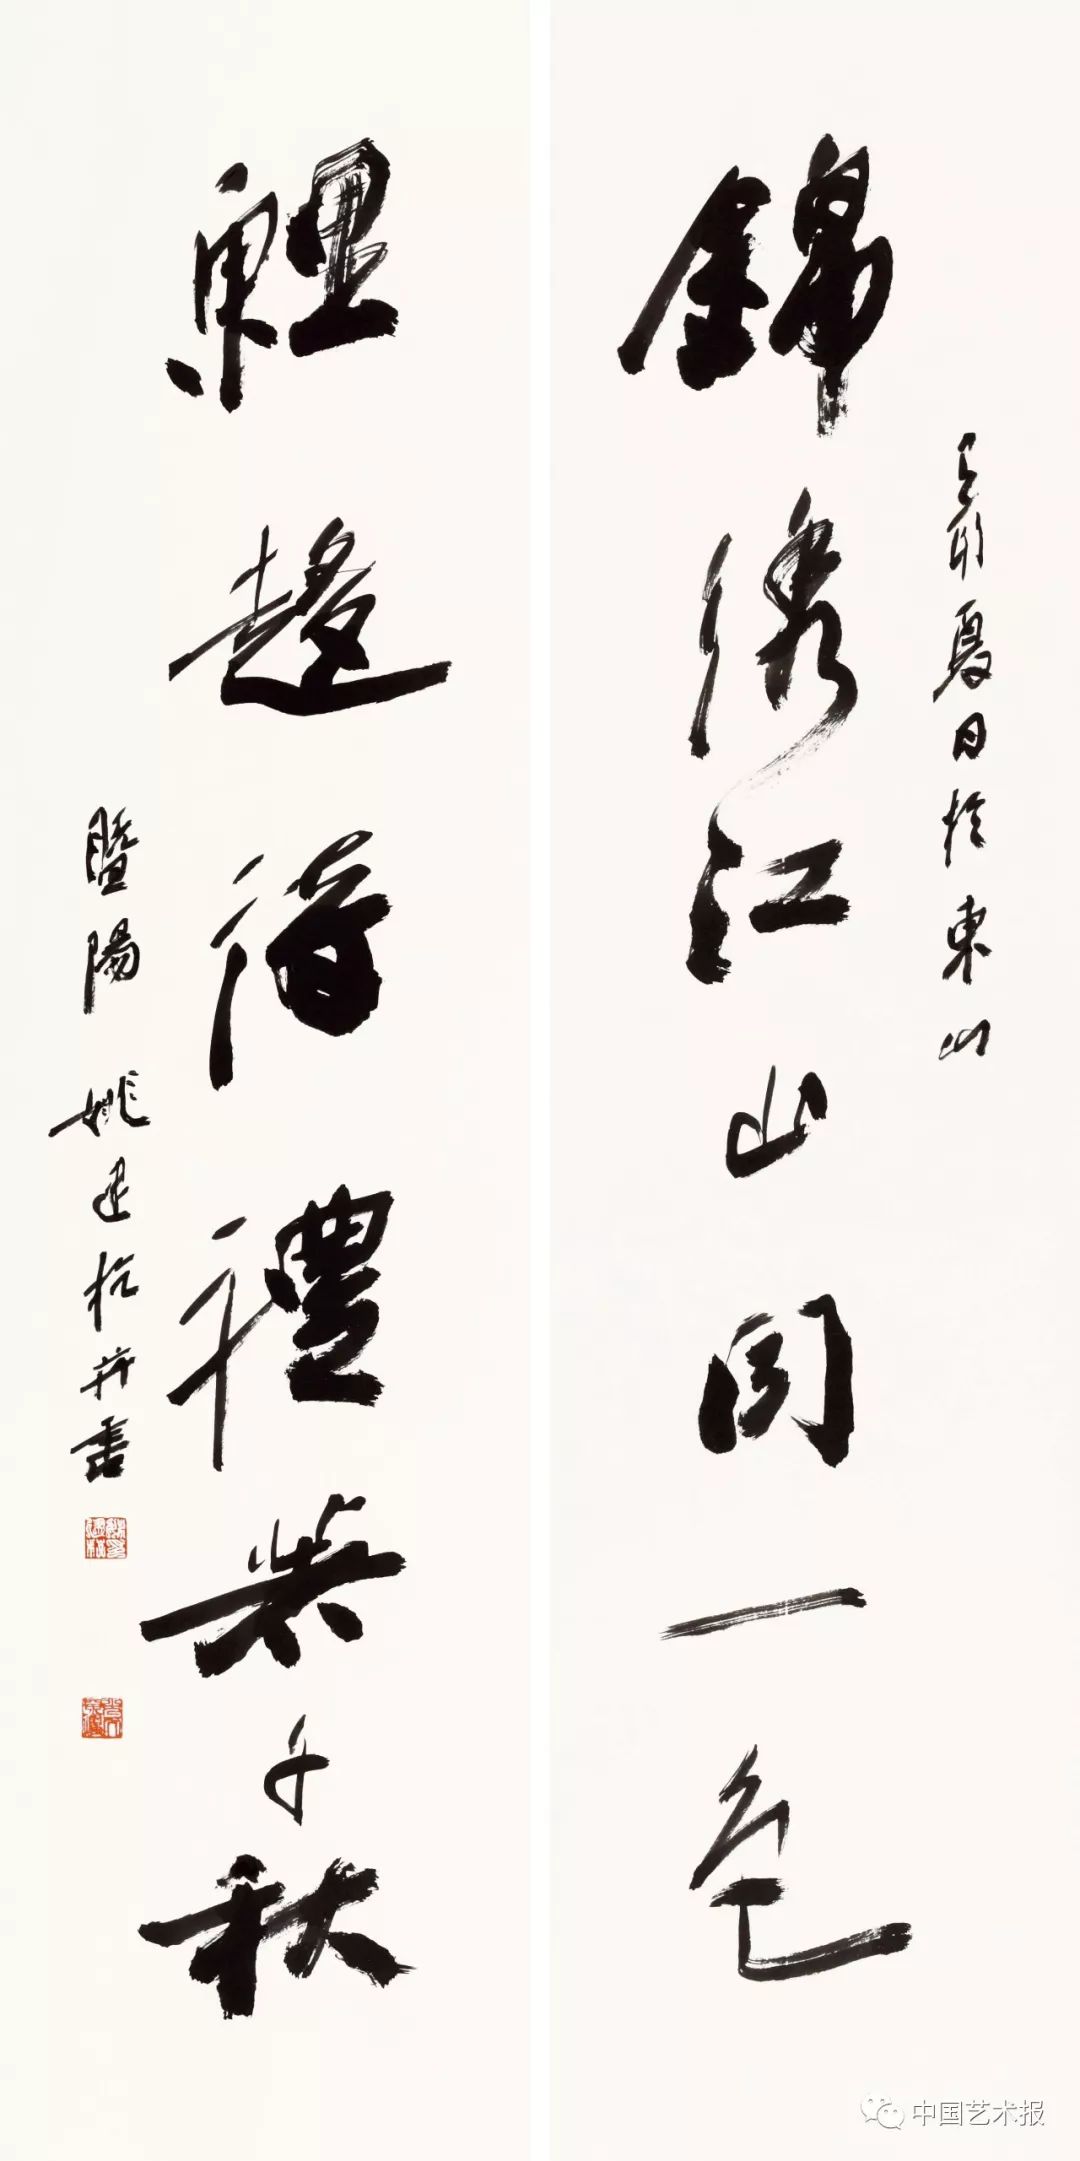 錦繡江山同一色
夏日於東山
鯉趨詩禮千秋
暨陽姚建杭并書
中国艺术报